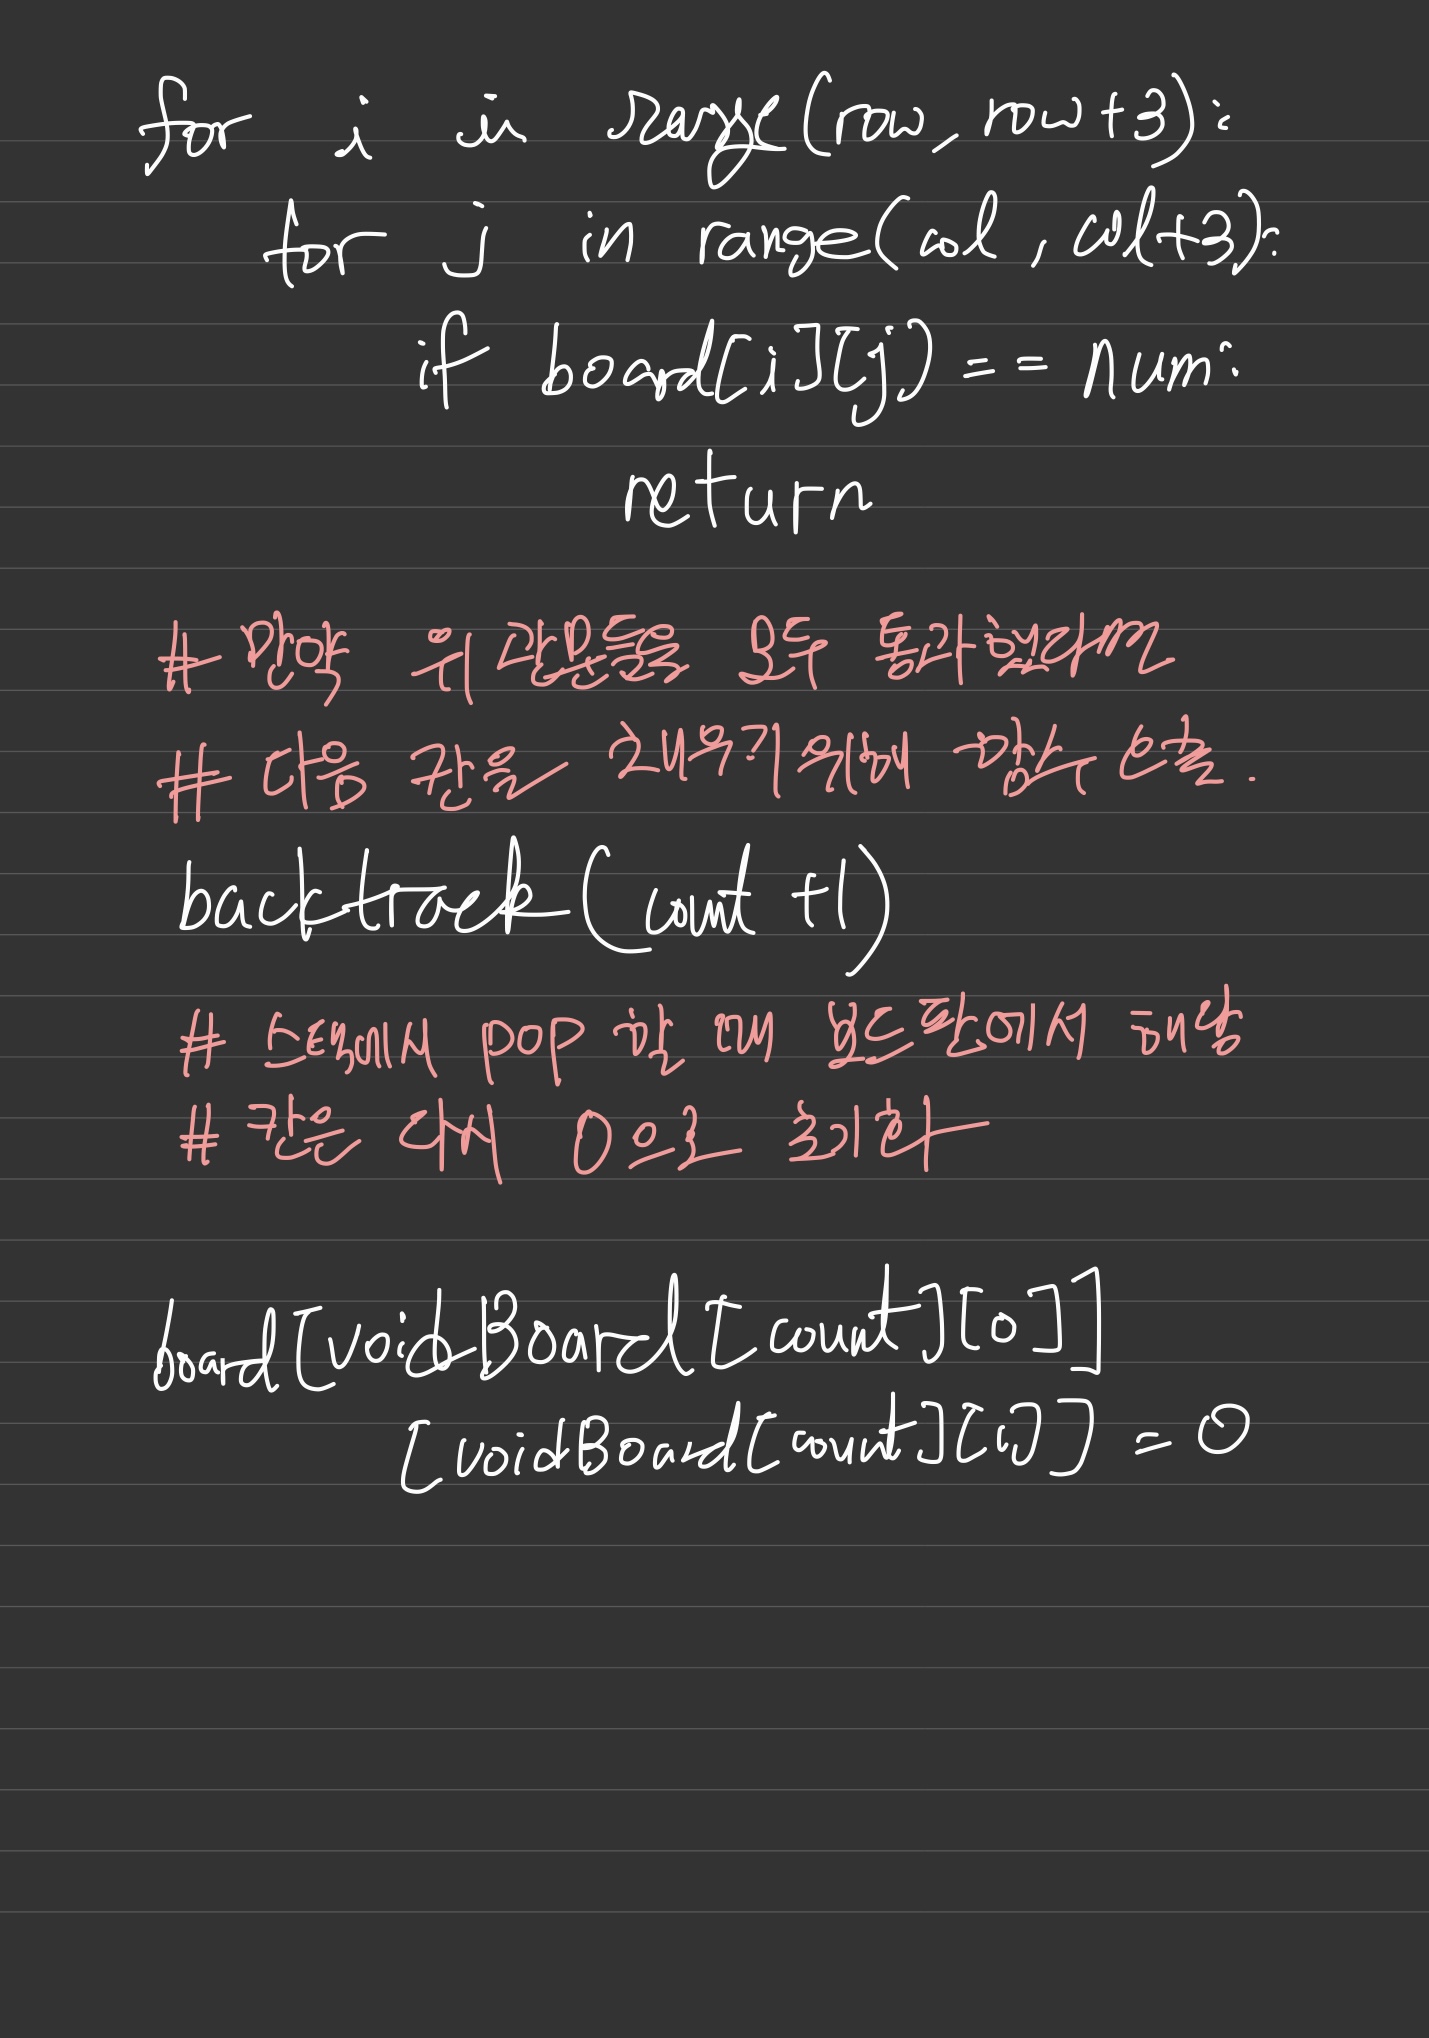 for i in range(row, row+3):
for j in range(col, col+3):
if board[i][j] == num:
return
# 만약 위 관문들을 모두 통과했다면
# 다음 칸을 채우기 위해 함수 호출.
backtrack(count +1)
# 스택에서 pop 할 때 보드판에서 해당
# 칸은 다시 0으로 초기화
board[voidBoard[count][0]]
[voidBoard[count][1]] = 0